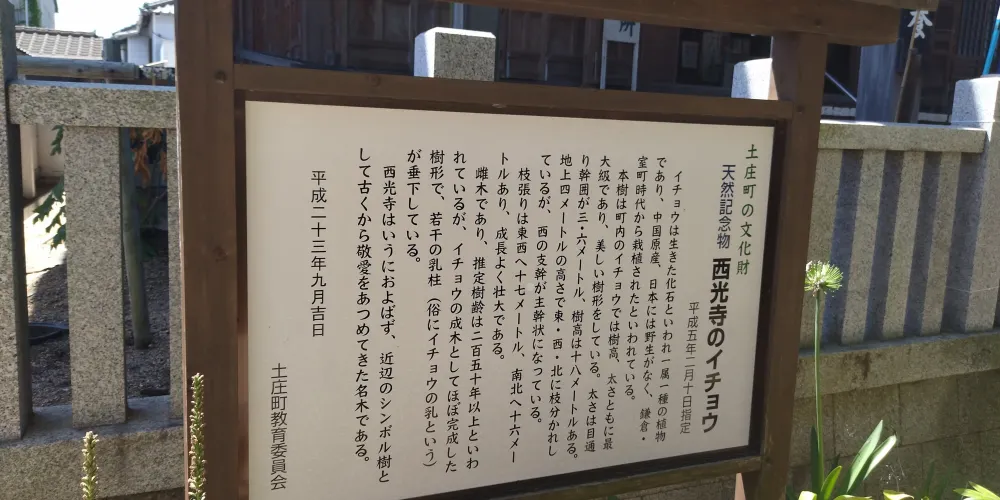 土庄町の文化財
天然記念物 西光寺のイチョウ
平成五年二月十日指定
イチョウは生きた化石といわれ一属一種の植物
であり、中国原産、日本には野生がなく、鎌倉・
室町時代から栽植されたといわれている。
本樹は町内のイチョウでは樹高、太さともに最
大級であり、美しい樹形をしている。太さは目通
り幹囲が三・六メートル、樹高は十八メートルある。
地上四メートルの高さで東・西・北に枝分かれし
ているが、西の支幹が主幹状になっている。
枝張りは東西へ十七メートル、南北へ十六メー
トルあり、成長よく壮大である。
雌木であり、推定樹齢は二百五十年以上といわ
れているが、イチョウの成木としてほぼ完成した
樹形で、若干の乳柱（俗にイチョウの乳という）
が垂下している。
西光寺はいうにおよばず、近辺のシンボル樹と
して古くから敬愛をあつめてきた名木である。
平成二十三年九月吉日
土庄町教育委員会
所